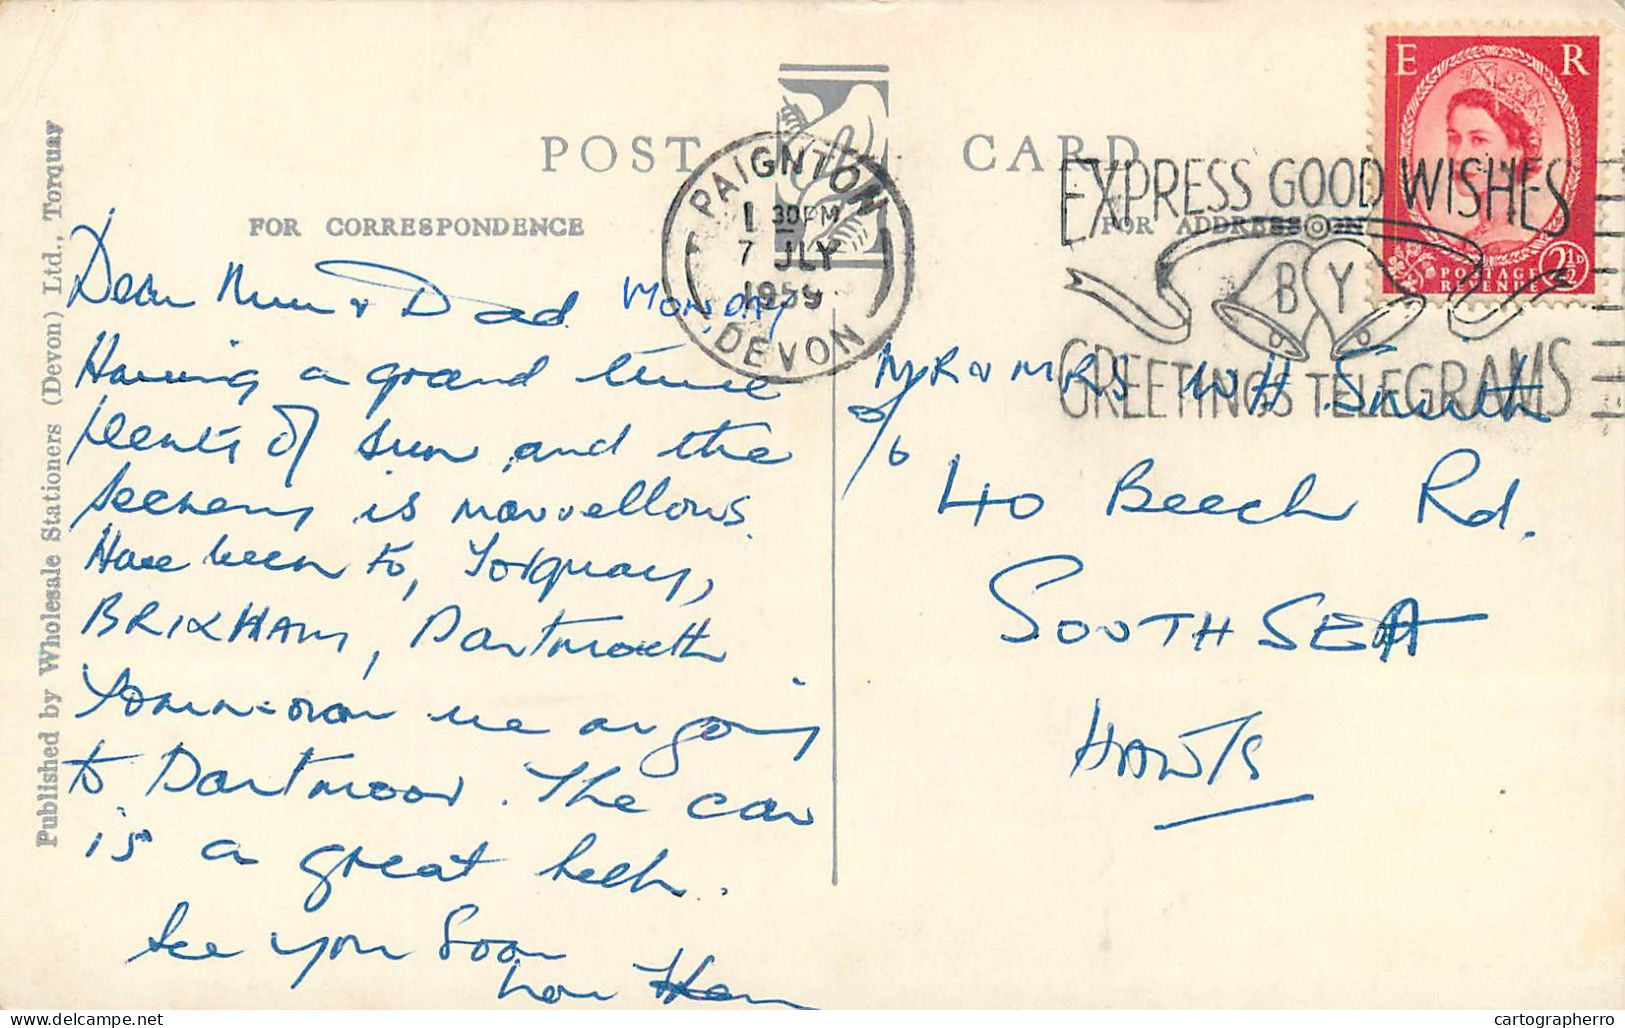 POST CARD
FOR CORRESPONDENCE
FOR ADDRESS ON
PAIGNTON
1 30PM
7 JLY
1959
DEVON
EXPRESS GOOD WISHES
BY
GREETINGS TELEGRAMS
E R
POSTAGE
REVENUE
2½D
Published by Wholesale Stationers (Devon) Ltd., Torquay
Dear Mum & Dad Monday
Having a grand time
plenty of sun and the
scenery is marvellous.
Have been to, Torquay,
BRIXHAM, Dartmouth
Tomorrow we are going
to Dartmoor. The car
is a great help.
See you Soon
MR & MRS W H Smith
40 Beech Rd.
SOUTHSEA
HANTS
cartographerro